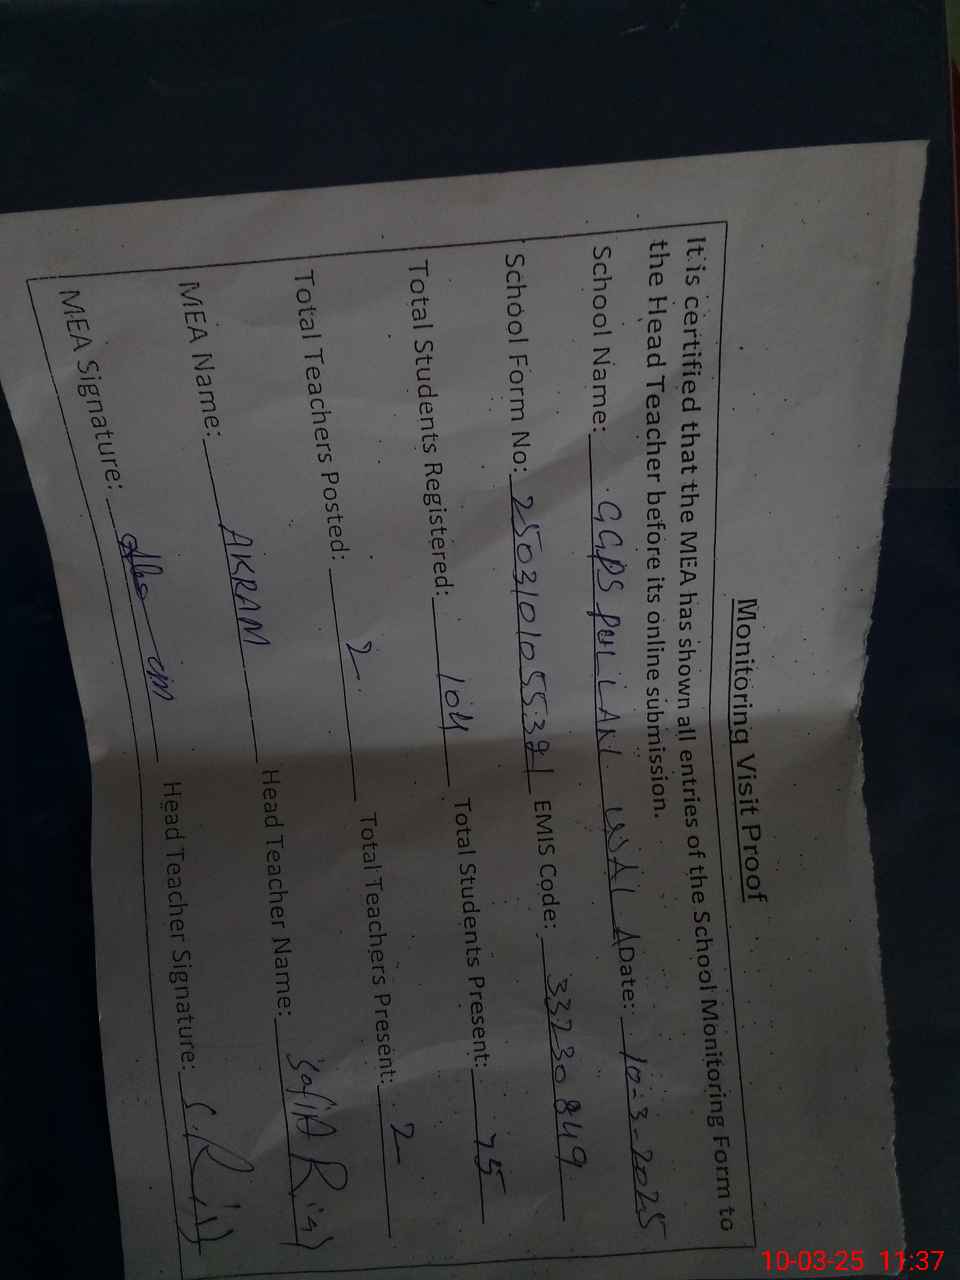 Monitoring Visit Proof
It is certified that the MEA has shown all entries of the School Monitoring Form to
the Head Teacher before its online submission.
School Name: GGPS PULLAN Date: 10-3-2025
School Form No: 2503101055391 EMIS Code: 33230849
Total Students Registered: 104 Total Students Present: 75
Total Teachers Posted: 2 Total Teachers Present: 2
MEA Name: AKRAM Head Teacher Name: SafiA Riaz
MEA Signature: Head Teacher Signature:
10-03-25 11:37